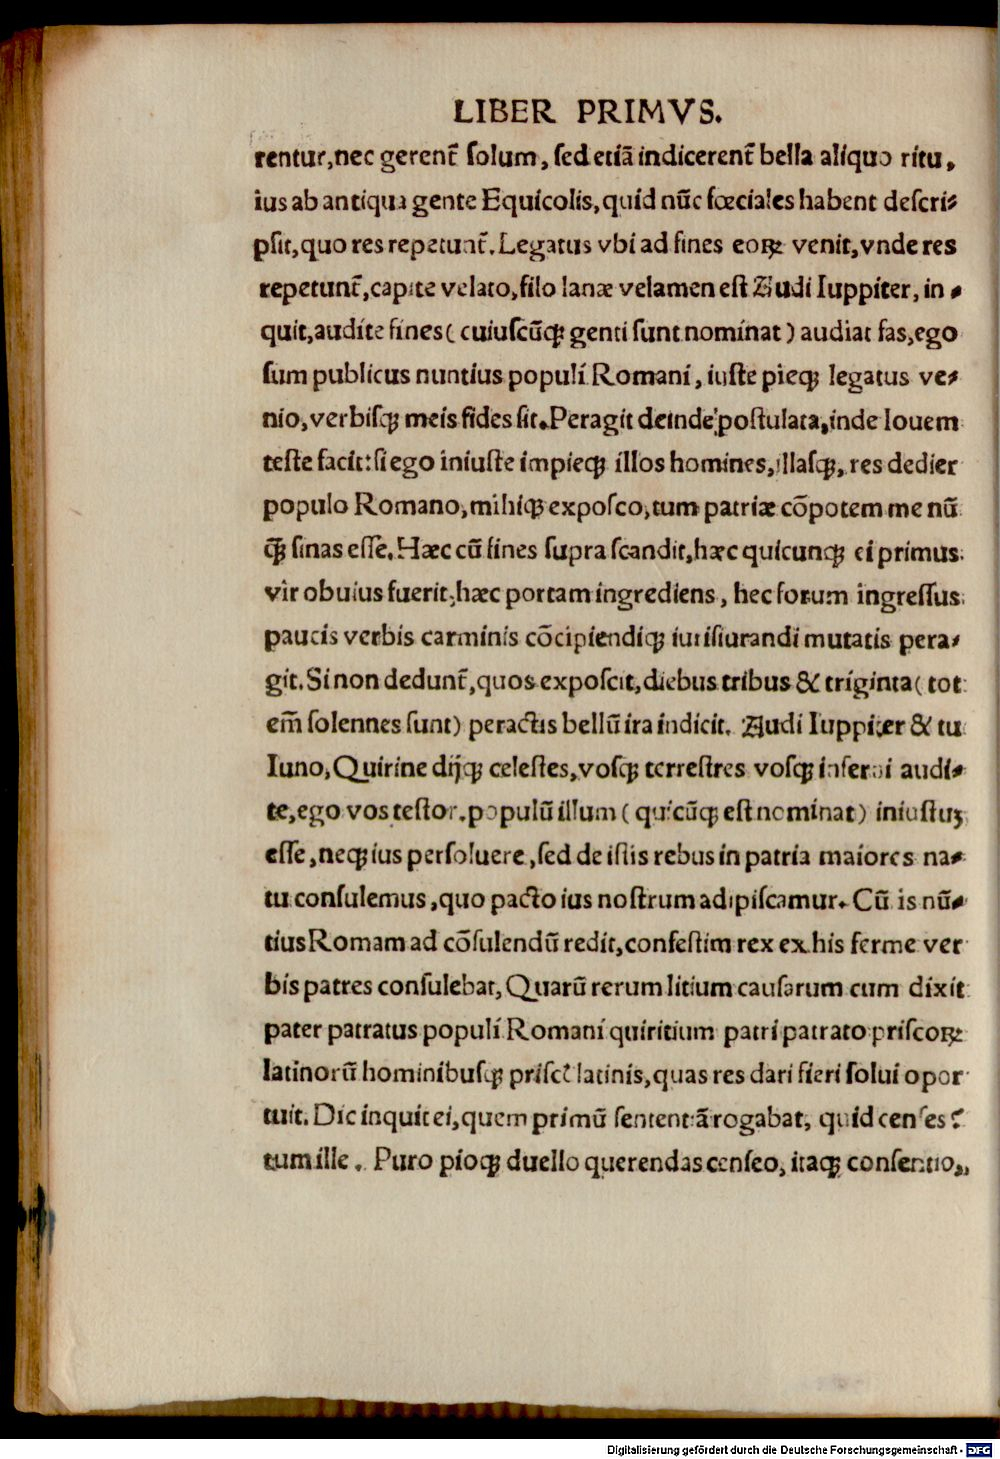 LIBER PRIMVS.
rentur,nec gerent̃ ſolum, ſed etiã indicerent̃ bella aliquo ritu,
ius ab antiqua gente Equicolis, quid nũc fœciales habent deſcri-
pſit,quo res repetunt̃. Legatus vbi ad fines eoꝝ venit,vnde res
repetunt̃,capite velato,filo lanæ velamen eſt Audi Iuppiter, in-
quit,audite fines( cuiuſcũqꝫ genti ſunt nominat ) audiat fas,ego
ſum publicus nuntius populi Romani, iuſte pieqꝫ legatus ve-
nio, verbiſqꝫ meis fides ſit. Peragit deinde poſtulata,inde Iouem
teſte facit: ſi ego iniuſte impieqꝫ illos homines, illaſqꝫ, res dedier
populo Romano, mihiqꝫ expoſco,tum patriæ cõpotem me nũ
qꝫ̃ ſinas eſſe. Hæc cũ fines ſupra ſcandit,hæc quicunqꝫ ei primus
vir obuius fuerit,hæc portam ingrediens, hec forum ingreſſus
paucis verbis carminis cõcipiendiqꝫ iuriſiurandi mutatis pera-
git. Si non dedunt̃,quos expoſcit,diebus tribus & triginta( tot
em̃ ſolennes ſunt) peractis bellũ ita indicit. Audi Iuppiter & tu
Iuno, Quirine dijqꝫ celeſtes, voſqꝫ terreſtres voſqꝫ inferni audi-
te,ego vos teſtor.populũ illum ( quicũqꝫ eſt nominat ) iniuſtuꝫ
eſſe, neqꝫ ius perſoluere, ſed de iſtis rebus in patria maiores na-
tu conſulemus, quo pacto ius noſtrum adipiſcamur. Cũ is nũ-
tius Romam ad cõſulendũ redit,confeſtim rex ex his ferme ver
bis patres conſulebat, Quarũ rerum litium cauſarum cum dixit
pater patratus populi Romani quiritium patri patrato priſcoꝝ
latinorũ hominibuſqꝫ priſc̃ latinis, quas res dari fieri ſolui opor
tuit. Dic inquit ei,quem primũ ſententiã rogabat, quid cenſes?
tum ille. Puro pioqꝫ duello querendas cenſeo, itaqꝫ conſentio,
Digitalisierung gefördert durch die Deutsche Forschungsgemeinschaft - DFG